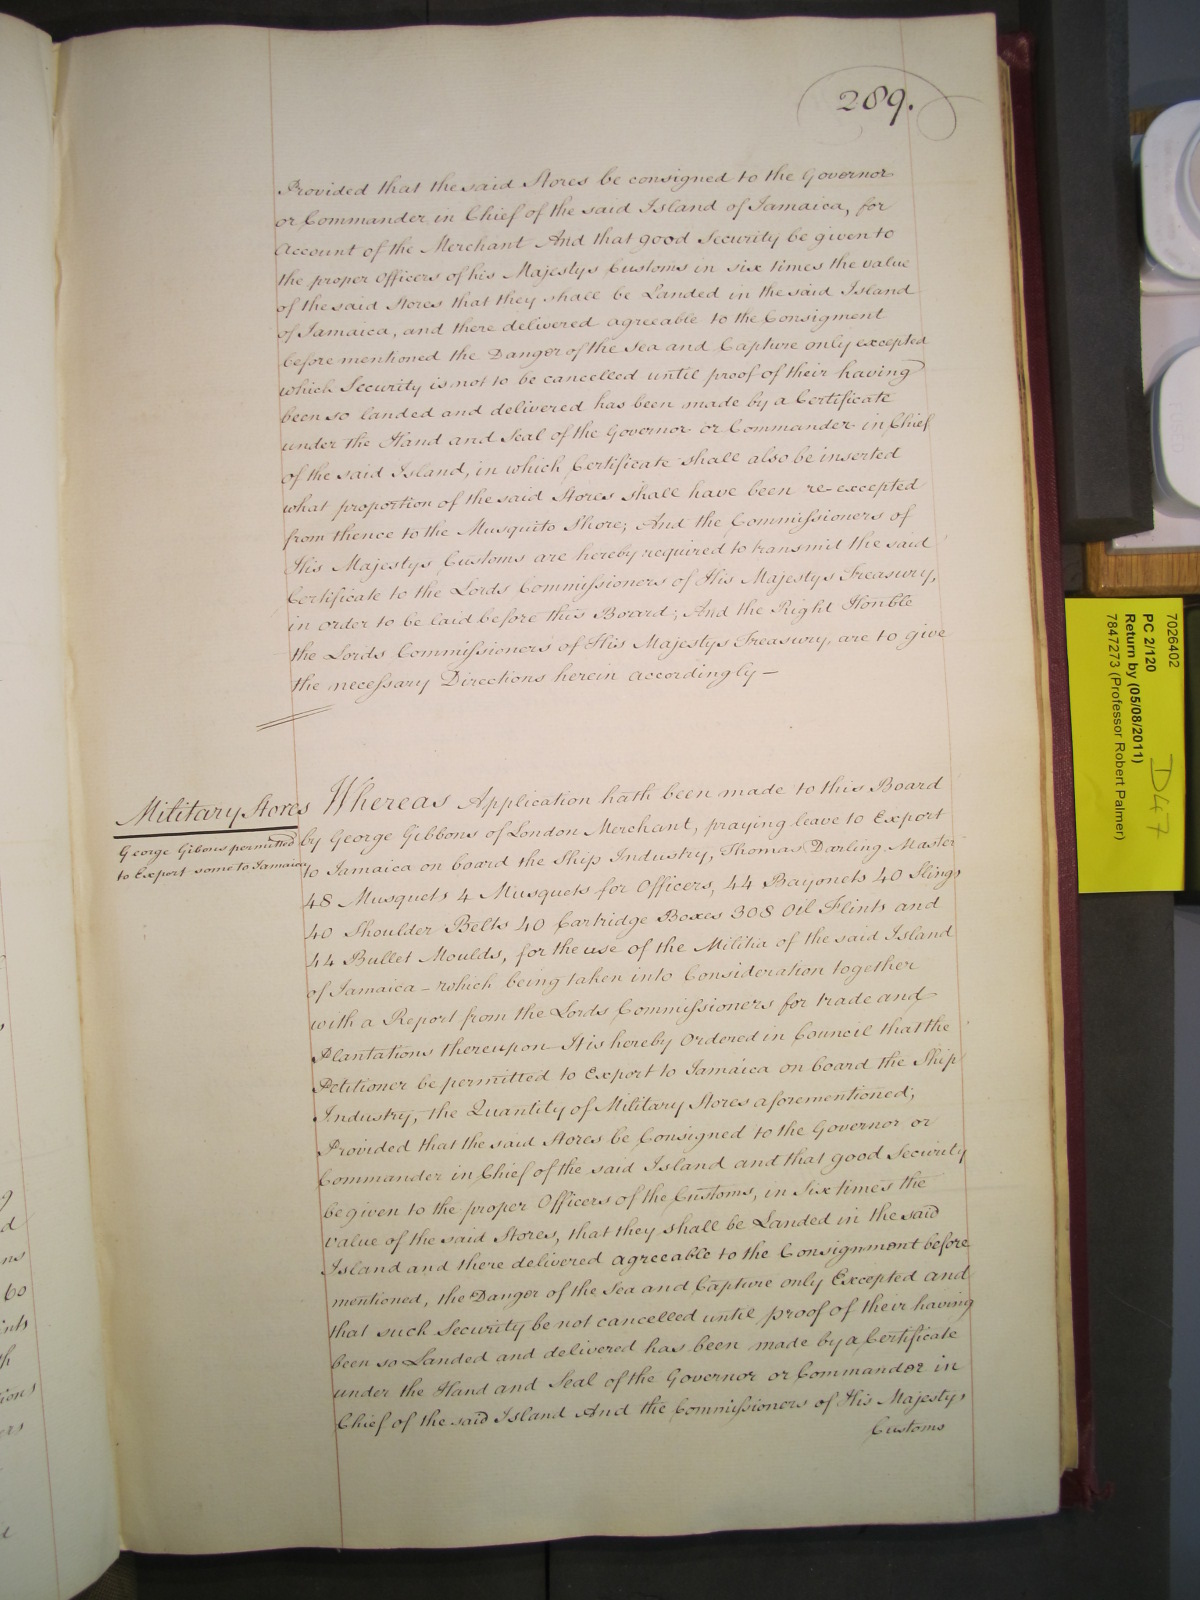 289.
Provided that the said Stores be consigned to the Governor
or Commander in Chief of the said Island of Jamaica, for
Account of the Merchant And that good Security be given to
the proper Officers of his Majestys Customs in six times the value
of the said Stores that they shall be Landed in the said Island
of Jamaica, and there delivered agreeable to the Consigment
before mentioned the Danger of the Sea and Capture only excepted
which Security is not to be cancelled until proof of their having
been so landed and delivered has been made by a Certificate
under the Hand and Seal of the Governor or Commander in Chief
of the said Island, in which Certificate shall also be inserted
what proportion of the said Stores shall have been re-excepted
from thence to the Musquito Shore; And the Commissioners of
His Majestys Customs are hereby required to transmit the said
Certificate to the Lords Commissioners of His Majestys Treasury,
in order to be laid before this Board; And the Right Honble
the Lords Commissioners of His Majestys Treasury, are to give
the necessary Directions herein accordingly —
Military Stores
George Gibons permitted
to Export some to Jamaica
Whereas Application hath been made to this Board
by George Gibbons of London Merchant, praying leave to Export
to Jamaica on board the Ship Industry, Thomas Darling Master
48 Musquets 4 Musquets for Officers, 44 Bayonets 40 Slings
40 Shoulder Belts 40 Cartridge Boxes 308 Oil Flints and
44 Bullet Moulds, for the use of the Militia of the said Island
of Jamaica – which being taken into Consideration together
with a Report from the Lords Commissioners for trade and
Plantations thereupon – It is hereby Ordered in Council that the
Petitioner be permitted to Export to Jamaica on board the Ship
Industry, the Quantity of Military Stores aforementioned;
Provided that the said Stores be Consigned to the Governor or
Commander in Chief of the said Island and that good Security
be given to the proper Officers of the Customs, in Six times the
value of the said Stores, that they shall be Landed in the said
Island and there delivered agreeable to the Consignment before
mentioned, the Danger of the Sea and Capture only Excepted and
that such Security be not cancelled until proof of their having
been so Landed and delivered has been made by a Certificate
under the Hand and Seal of the Governor or Commander in
Chief of the said Island And the Commissioners of His Majestys
Customs
7026402
PC 2/120
Return by (05/08/2011)
7847273 (Professor Robert Palmer)
D47